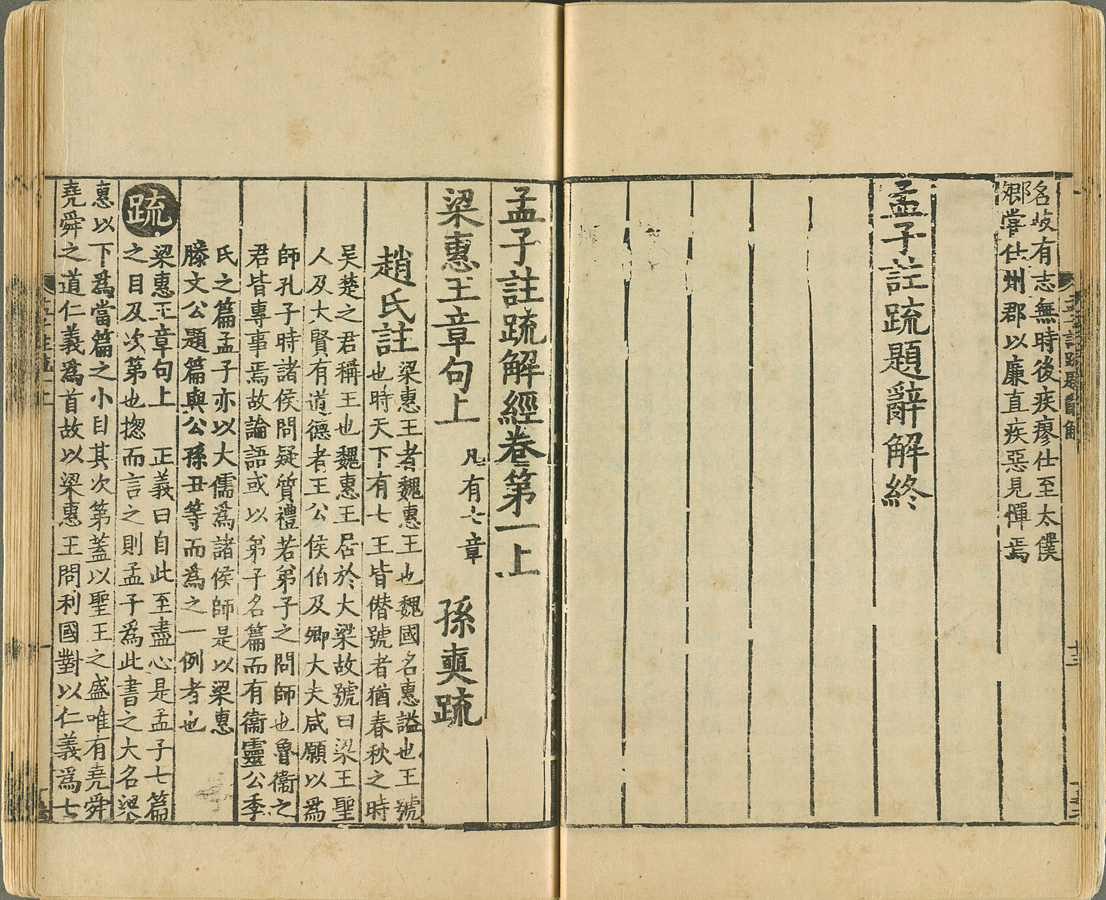 名岐有志無時後疾瘳仕至太僕
卿嘗仕州郡以廉直疾惡見憚焉
孟子註疏題辭解終
孟子註疏解經卷第一上
梁惠王章句上 凡有七章 孫奭疏
趙氏註
梁惠王者魏惠王也魏國名惠謚也王號
也時天下有七王皆僭號者猶春秋之時
吳楚之君稱王也魏惠王居於大梁故號曰梁王聖
人及大賢有道德者王公侯伯及卿大夫咸願以爲
師孔子時諸侯問疑質禮若弟子之問師也魯衞之
君皆專事焉故論語或以弟子名篇而有衞靈公季
氏之篇孟子亦以大儒爲諸侯師是以梁惠
滕文公題篇與公孫丑等而爲之一例者也
疏
梁惠王章句上 正義曰自此至盡心是孟子七篇
之目及次第也揔而言之則孟子爲此書之大名梁
惠以下爲當篇之小目其次第蓋以聖王之盛唯有堯舜
堯舜之道仁義爲首故以梁惠王問利國對以仁義爲七